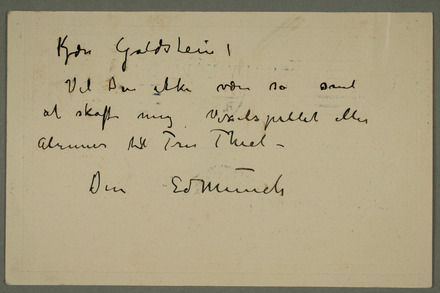 Kjære Goldstein!
Vil Du ikke være så snil
at skaffe mig Vexelspillet eller
Alruner til Fru Thiel –
Din EdMunch